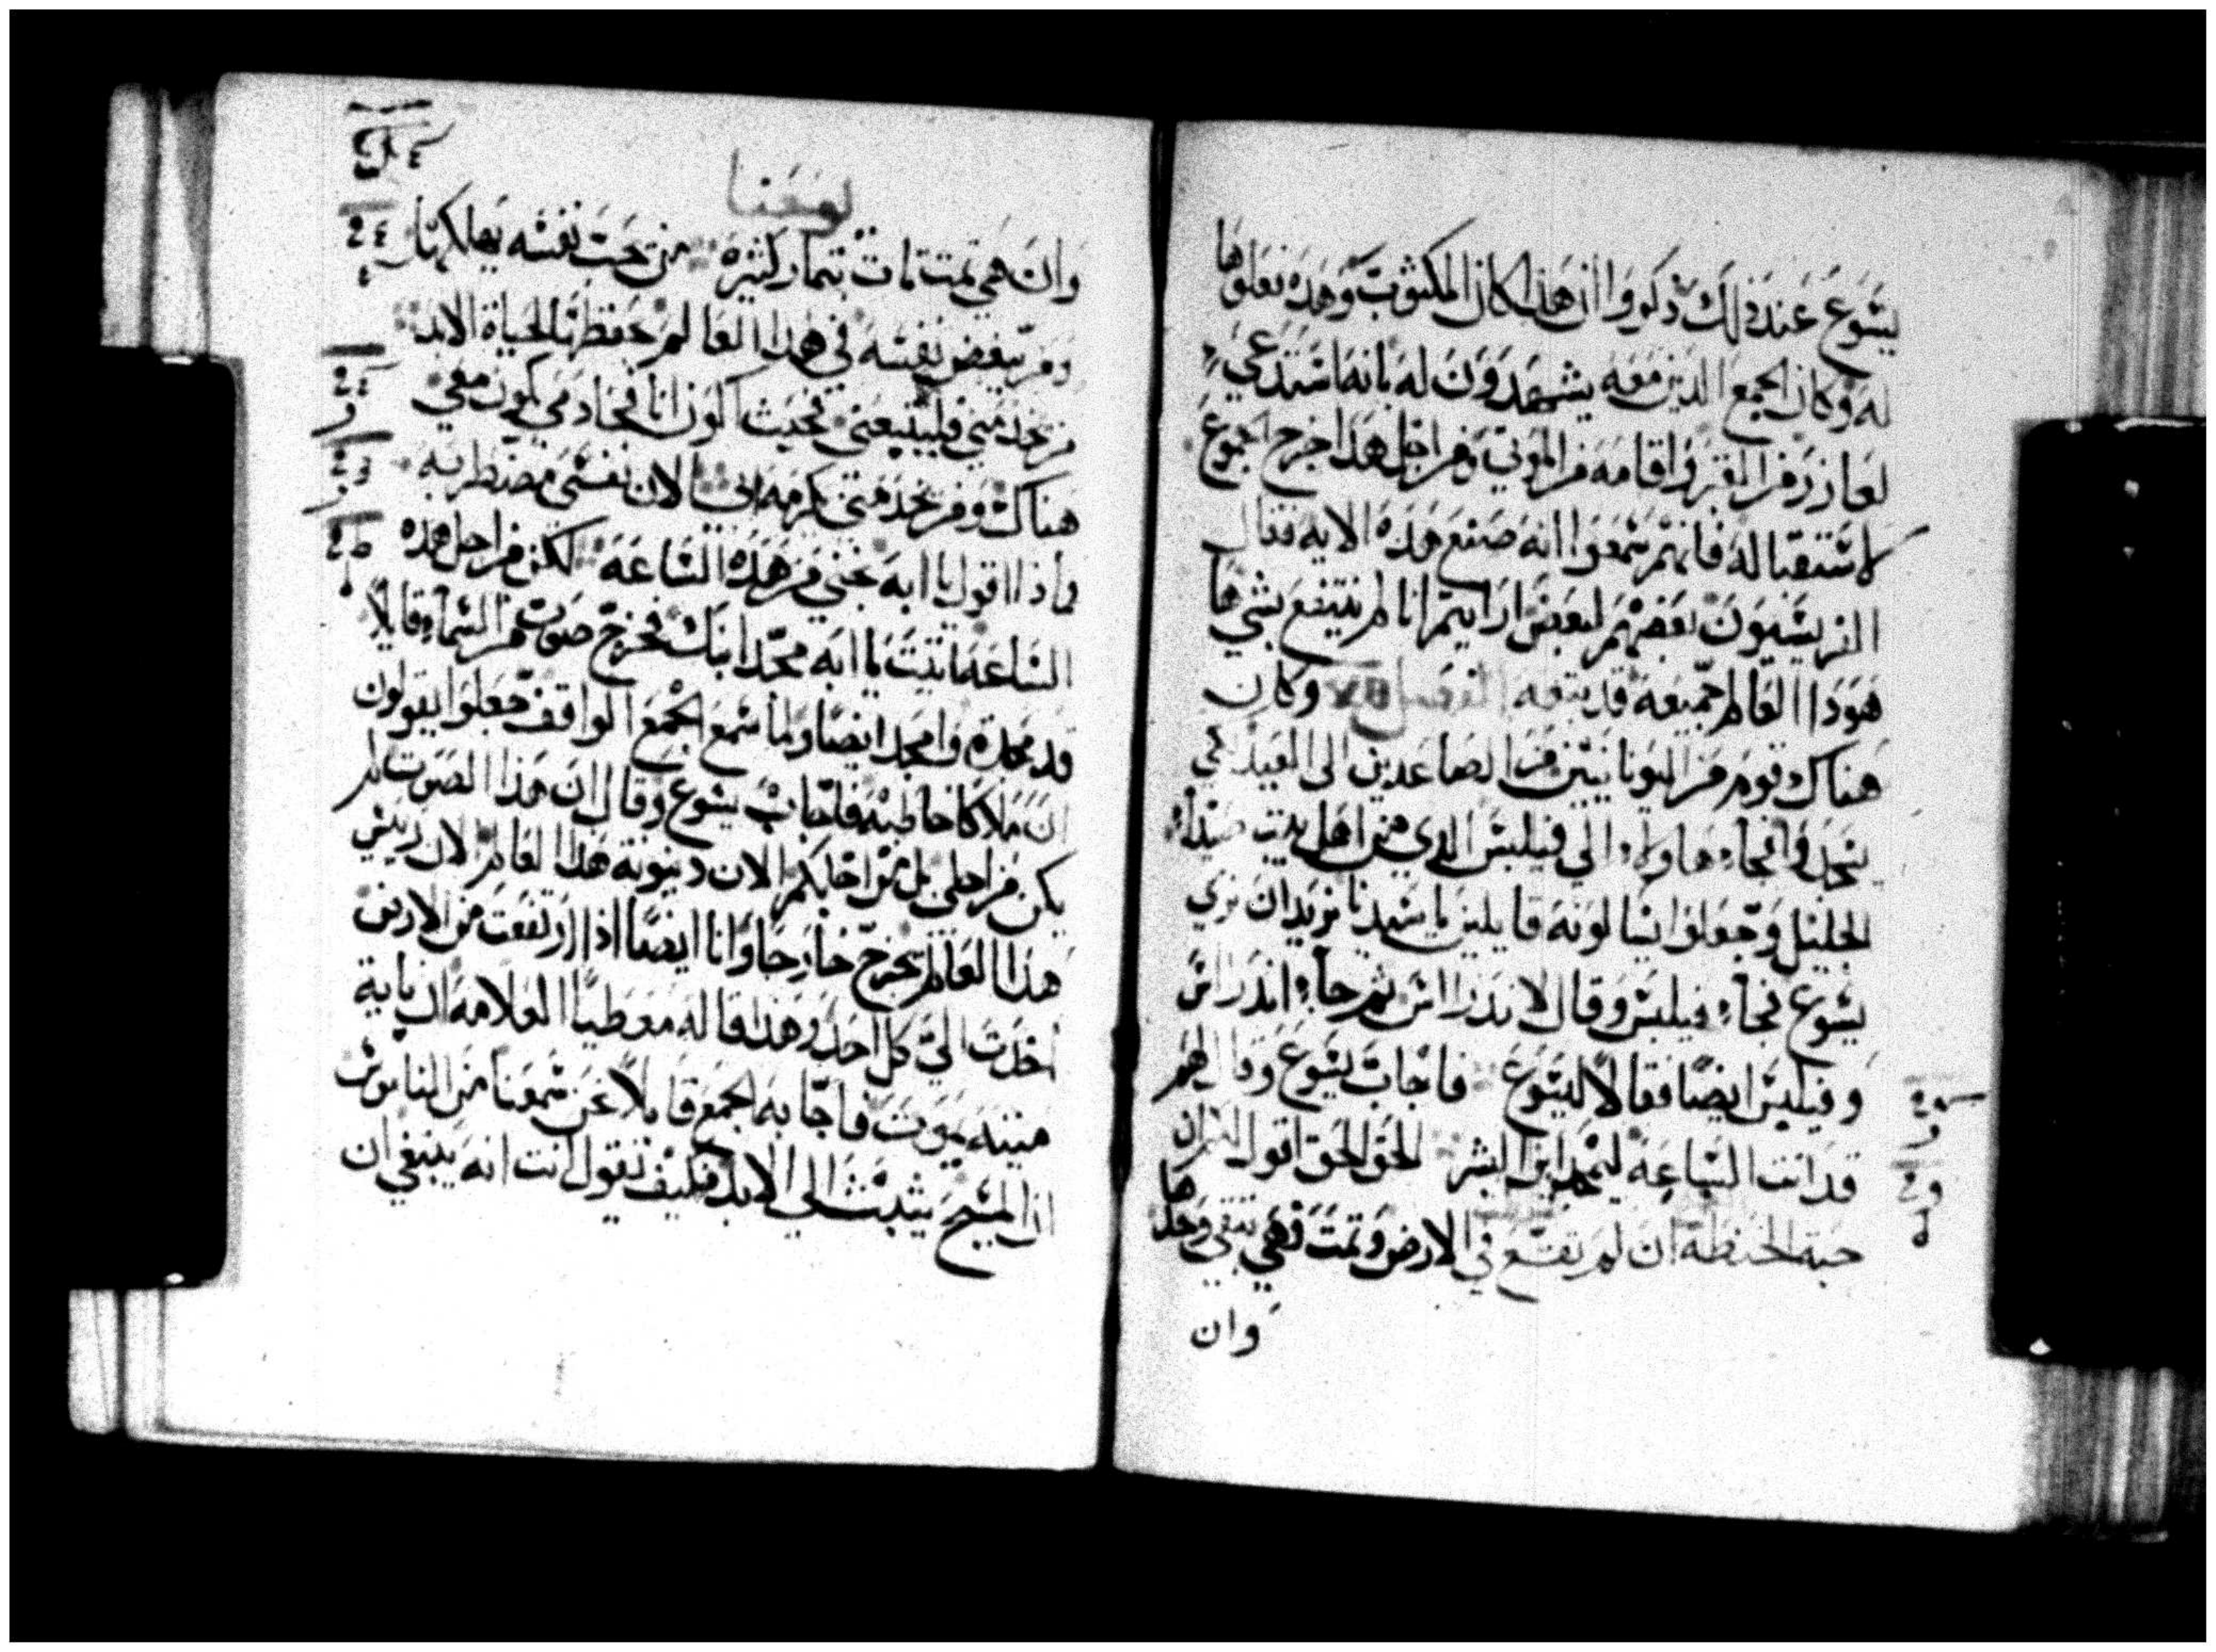 يسوع عند ذلك ذكروا أن هذا كان المكتوب وهذه فعلوها
له وكان الجمع الدين معه يشهدون له بانه استدعي
لعازر من القبر واقامه من الموتي ومن اجل هذا خرج الجموع
لاستقباله فانهم سمعوا انه صنع هذه الايه فقال
الفريسيون بعضهم لبعض ارايتم انا لم ننتفع بشي ها
هودا العالم جميعه قد يتبعه الفصل وكان
هناك قوم من اليونانيين من الصاعدين الى العيد لكي
يسجدوا فجاء هاولاء الي فيلبس الدي من اهل بيت صيدا
الجليل وجعلوا يسالونه قايلين يا سيدنا نريد ان نري
يسوع فجاء فيلبس وقال لاندراس ثم جاء اندراس
وفيلبس ايضا فقالا ليسوع فاجاب يسوع وقال لهم
قد اتت الساعه ليمجد ابن البشر الحق الحق اقول لكم ان
حبة الحنطه ان لم تقع في الارض وتمت فهي تبقي وحدها
وان
يوحنا
وان هي تمت تات بتمار كثيره من حب نفسه يهلكها
ومن يبغض نفسه في هدا العالم حفظها لحياة الابد
من يخدمني فليتبعني فحيث اكون انا فخادمي يكون معي
هناك ومن يخدمني يكرمه ابي الان نفسي مضطربه
وماذا اقول يا ابه نجني من هذه الساعه لكن من اجل هده
الساعه اتيت يا ابه مجد ابنك فخرج صوت من السماء قايلا
قد مجدت وامجد ايضا ولما سمع الجمع الواقف جعلوا يقولون
ان ملاكا خاطبه فاجاب يسوع وقال ان هذا الصوت لم
يكن من اجلي بل من اجلكم الان دينونة هدا العالم الان رييس
هدا العالم يخرج خارجا وانا ايضا اذا ارتفعت من الارض
اخدت الي كل احد وهذا قاله معطيا العلامه ان باية
ميته يموت فاجابه الجمع قايلا نحن سمعنا من الناموس
ان المسيح يثبت الي الابد فكيف تقول انت انه ينبغي ان